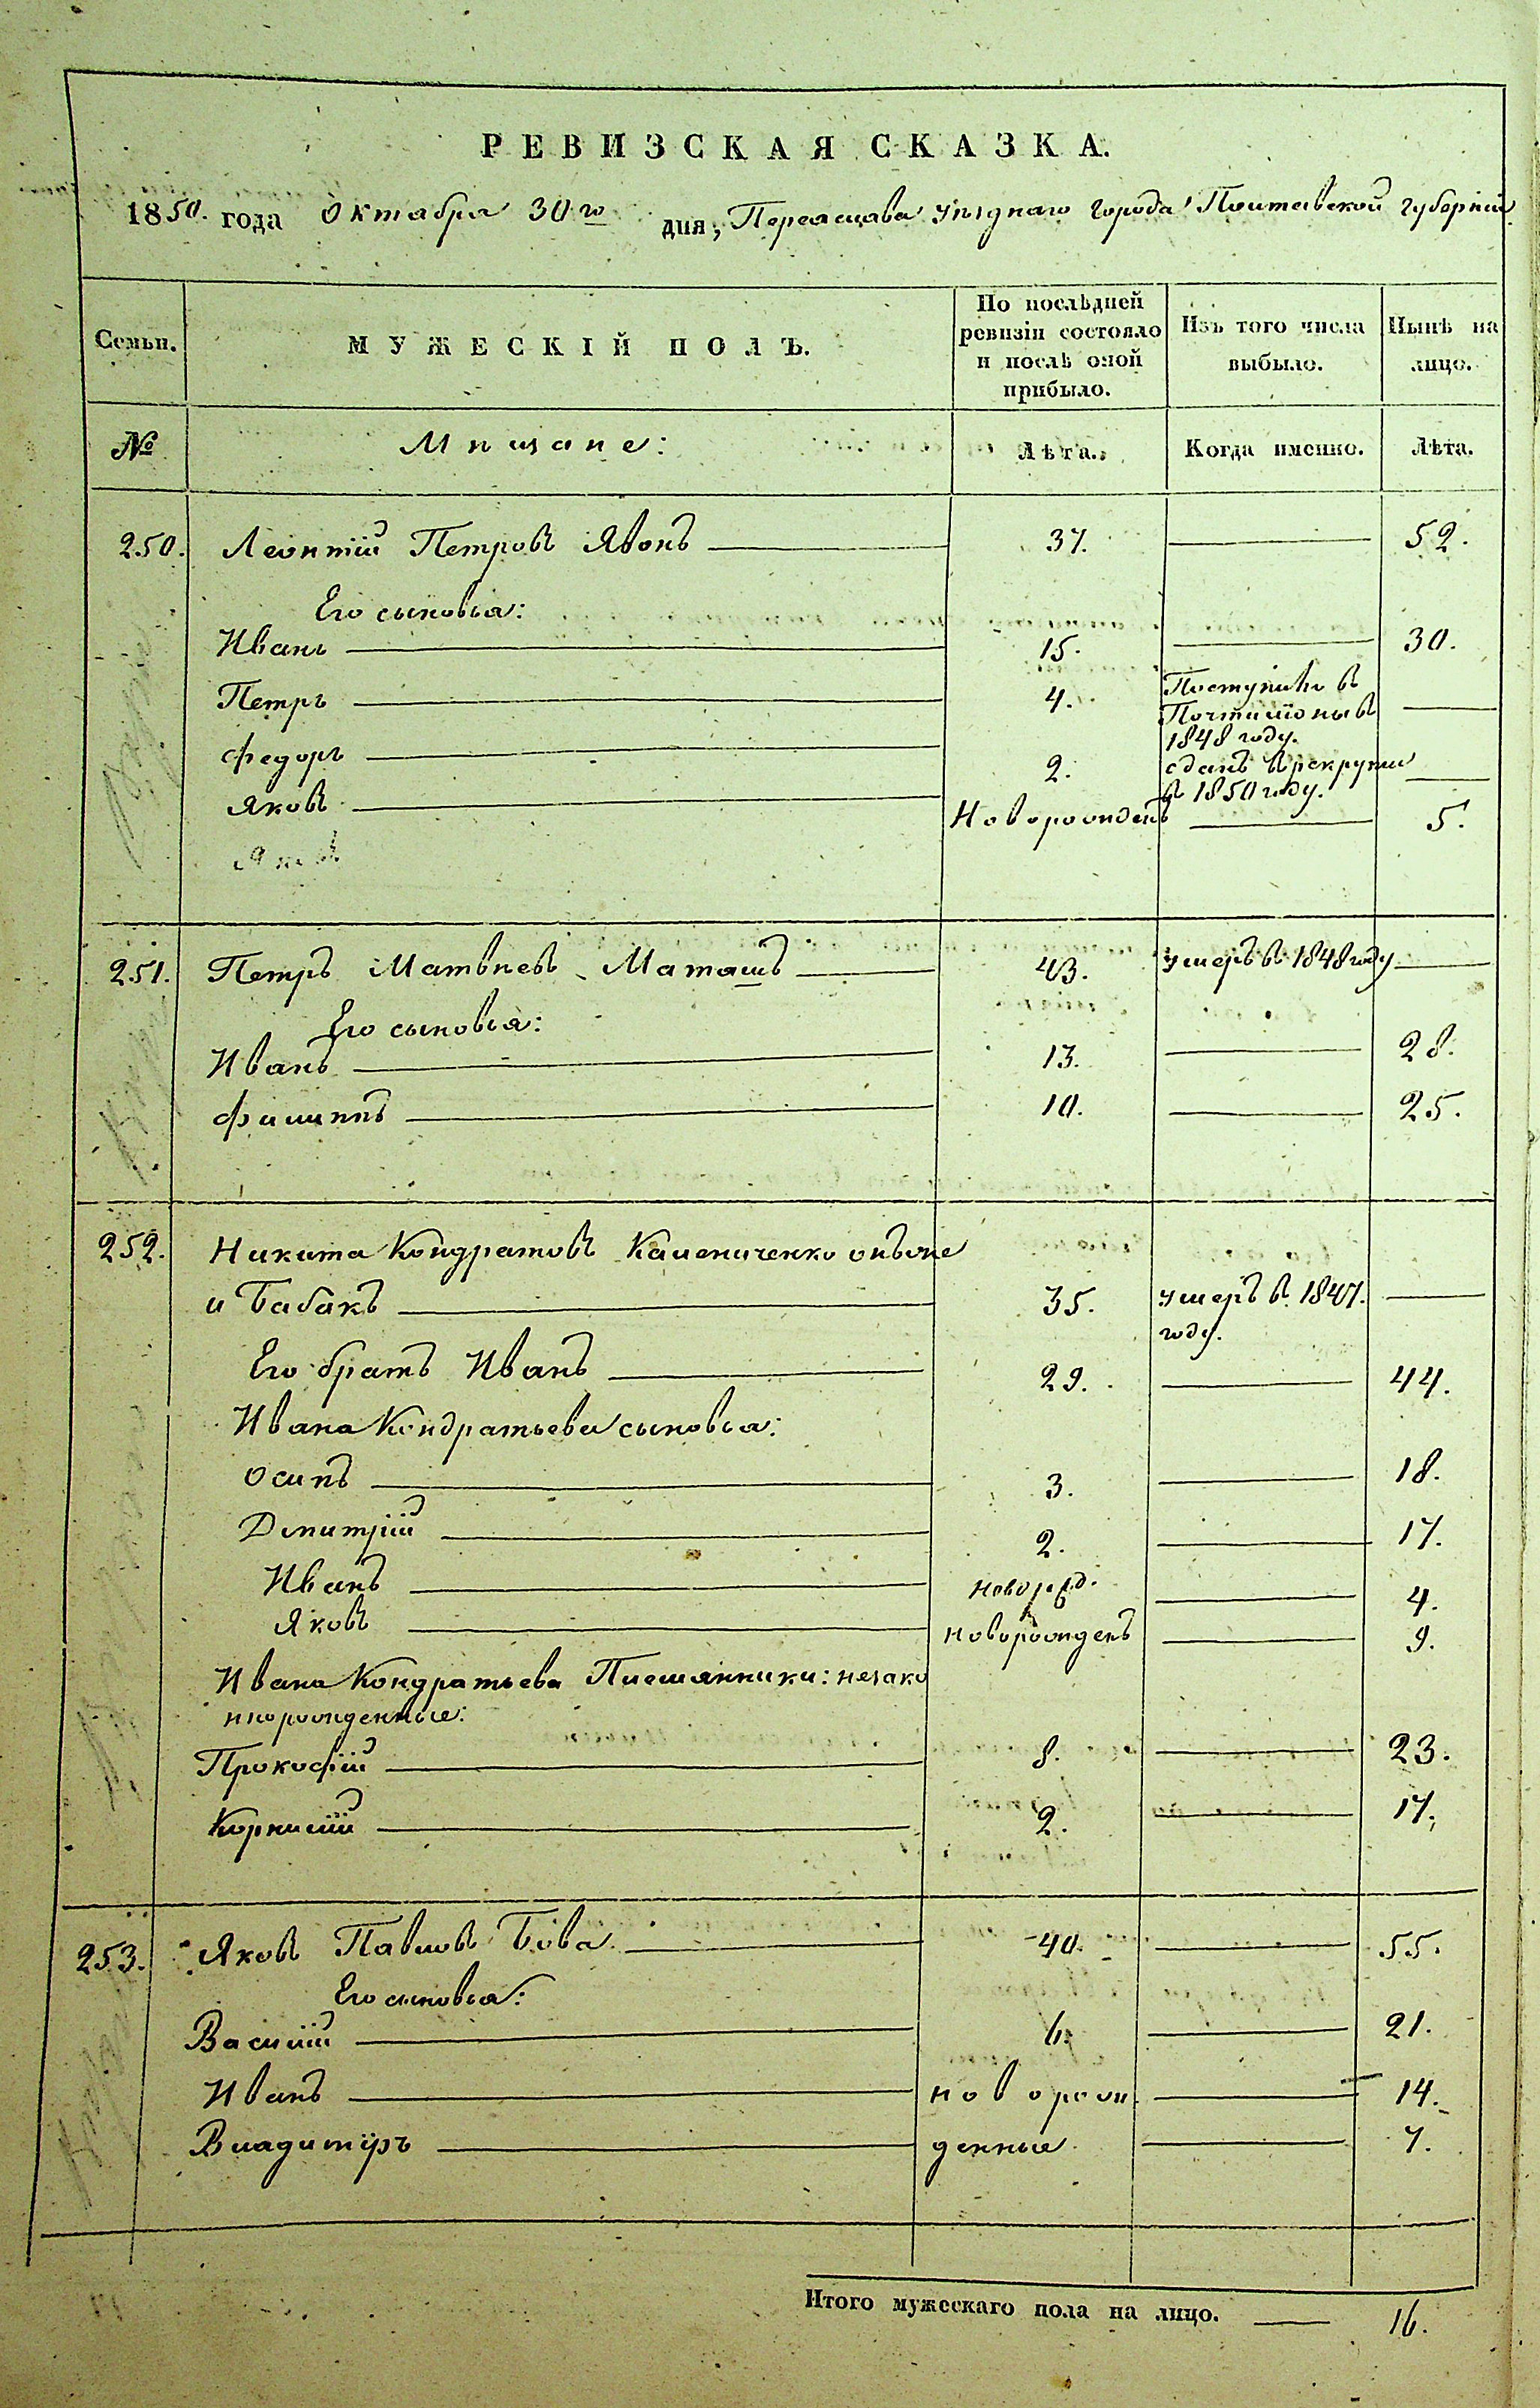 РЕВИЗСКАЯ СКАЗКА.
1850. года Октября 30го дня, Переяслава уѣзднаго города Полтавской губерніи
Семьи. МУЖЕСКІЙ ПОЛЪ. По послѣдней ревизіи состояло и послѣ оной прибыло. Изъ того числа выбыло. Нынѣ на лицо.
№ Мѣщане: Лѣта. Когда именно. Лѣта.
250. Леонтій Петровъ Явонъ 37. 52.
Его сыновья:
Иванъ 15. 30.
Петръ 4. Поступилъ въ Почталіоны въ 1848 году.
Федоръ 2. сданъ в рекруты в 1850 году.
Яковъ Новорожденъ 5.
251. Петръ Матвѣевъ Маташъ 43. умеръ въ 1848 году
Его сыновья:
Иванъ 13. 28.
Филиппъ 10. 25.
252. Никита Кондратовъ Калениченко онъже
и Бабакъ 35. умеръ в. 1847. году.
Его братъ Иванъ 29. 44.
Ивана Кондратьева сыновья:
Осипъ 3. 18.
Дмитрій 2. 17.
Иванъ новорожд. 4.
Яковъ новорожденъ 9.
Ивана Кондратьева Племянники: незако
ннорожденные:
Прокофій 8. 23.
Корнилій 2. 17.
253. Яковъ Павловъ Бова. 40. 55.
Его сыновья:
Василій 6. 21.
Иванъ новорож 14.
Владиміръ денные 7.
Итого мужескаго пола на лицо. 16.